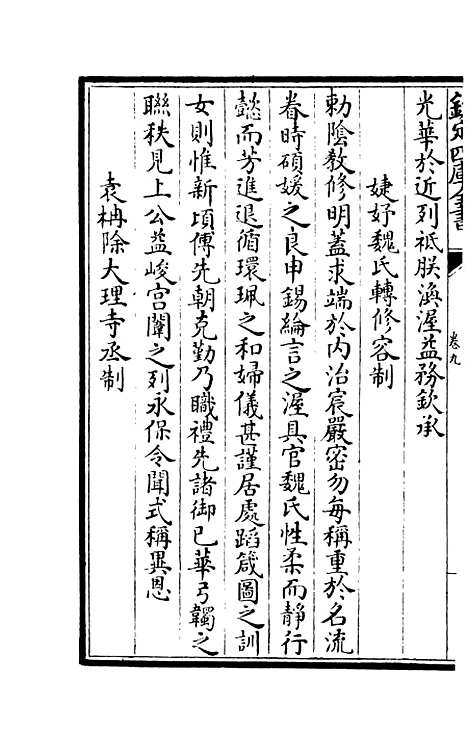 欽定四庫全書
卷九
光華於近列祗朕渙渥益務欽承
婕妤魏氏轉修容制
勅陰教修明蓋求端於内治宸嚴密勿每稱重於名流
眷時碩媛之良申錫綸言之渥具官魏氏性柔而静行
懿而芳進退循環珮之和婦儀甚謹居處蹈箴圖之訓
女則惟新頃傅先朝克勤乃職禮先諸御已華弓韣之
聯秩見上公益峻宫闈之列永保令聞式稱異恩
袁柟除大理寺丞制